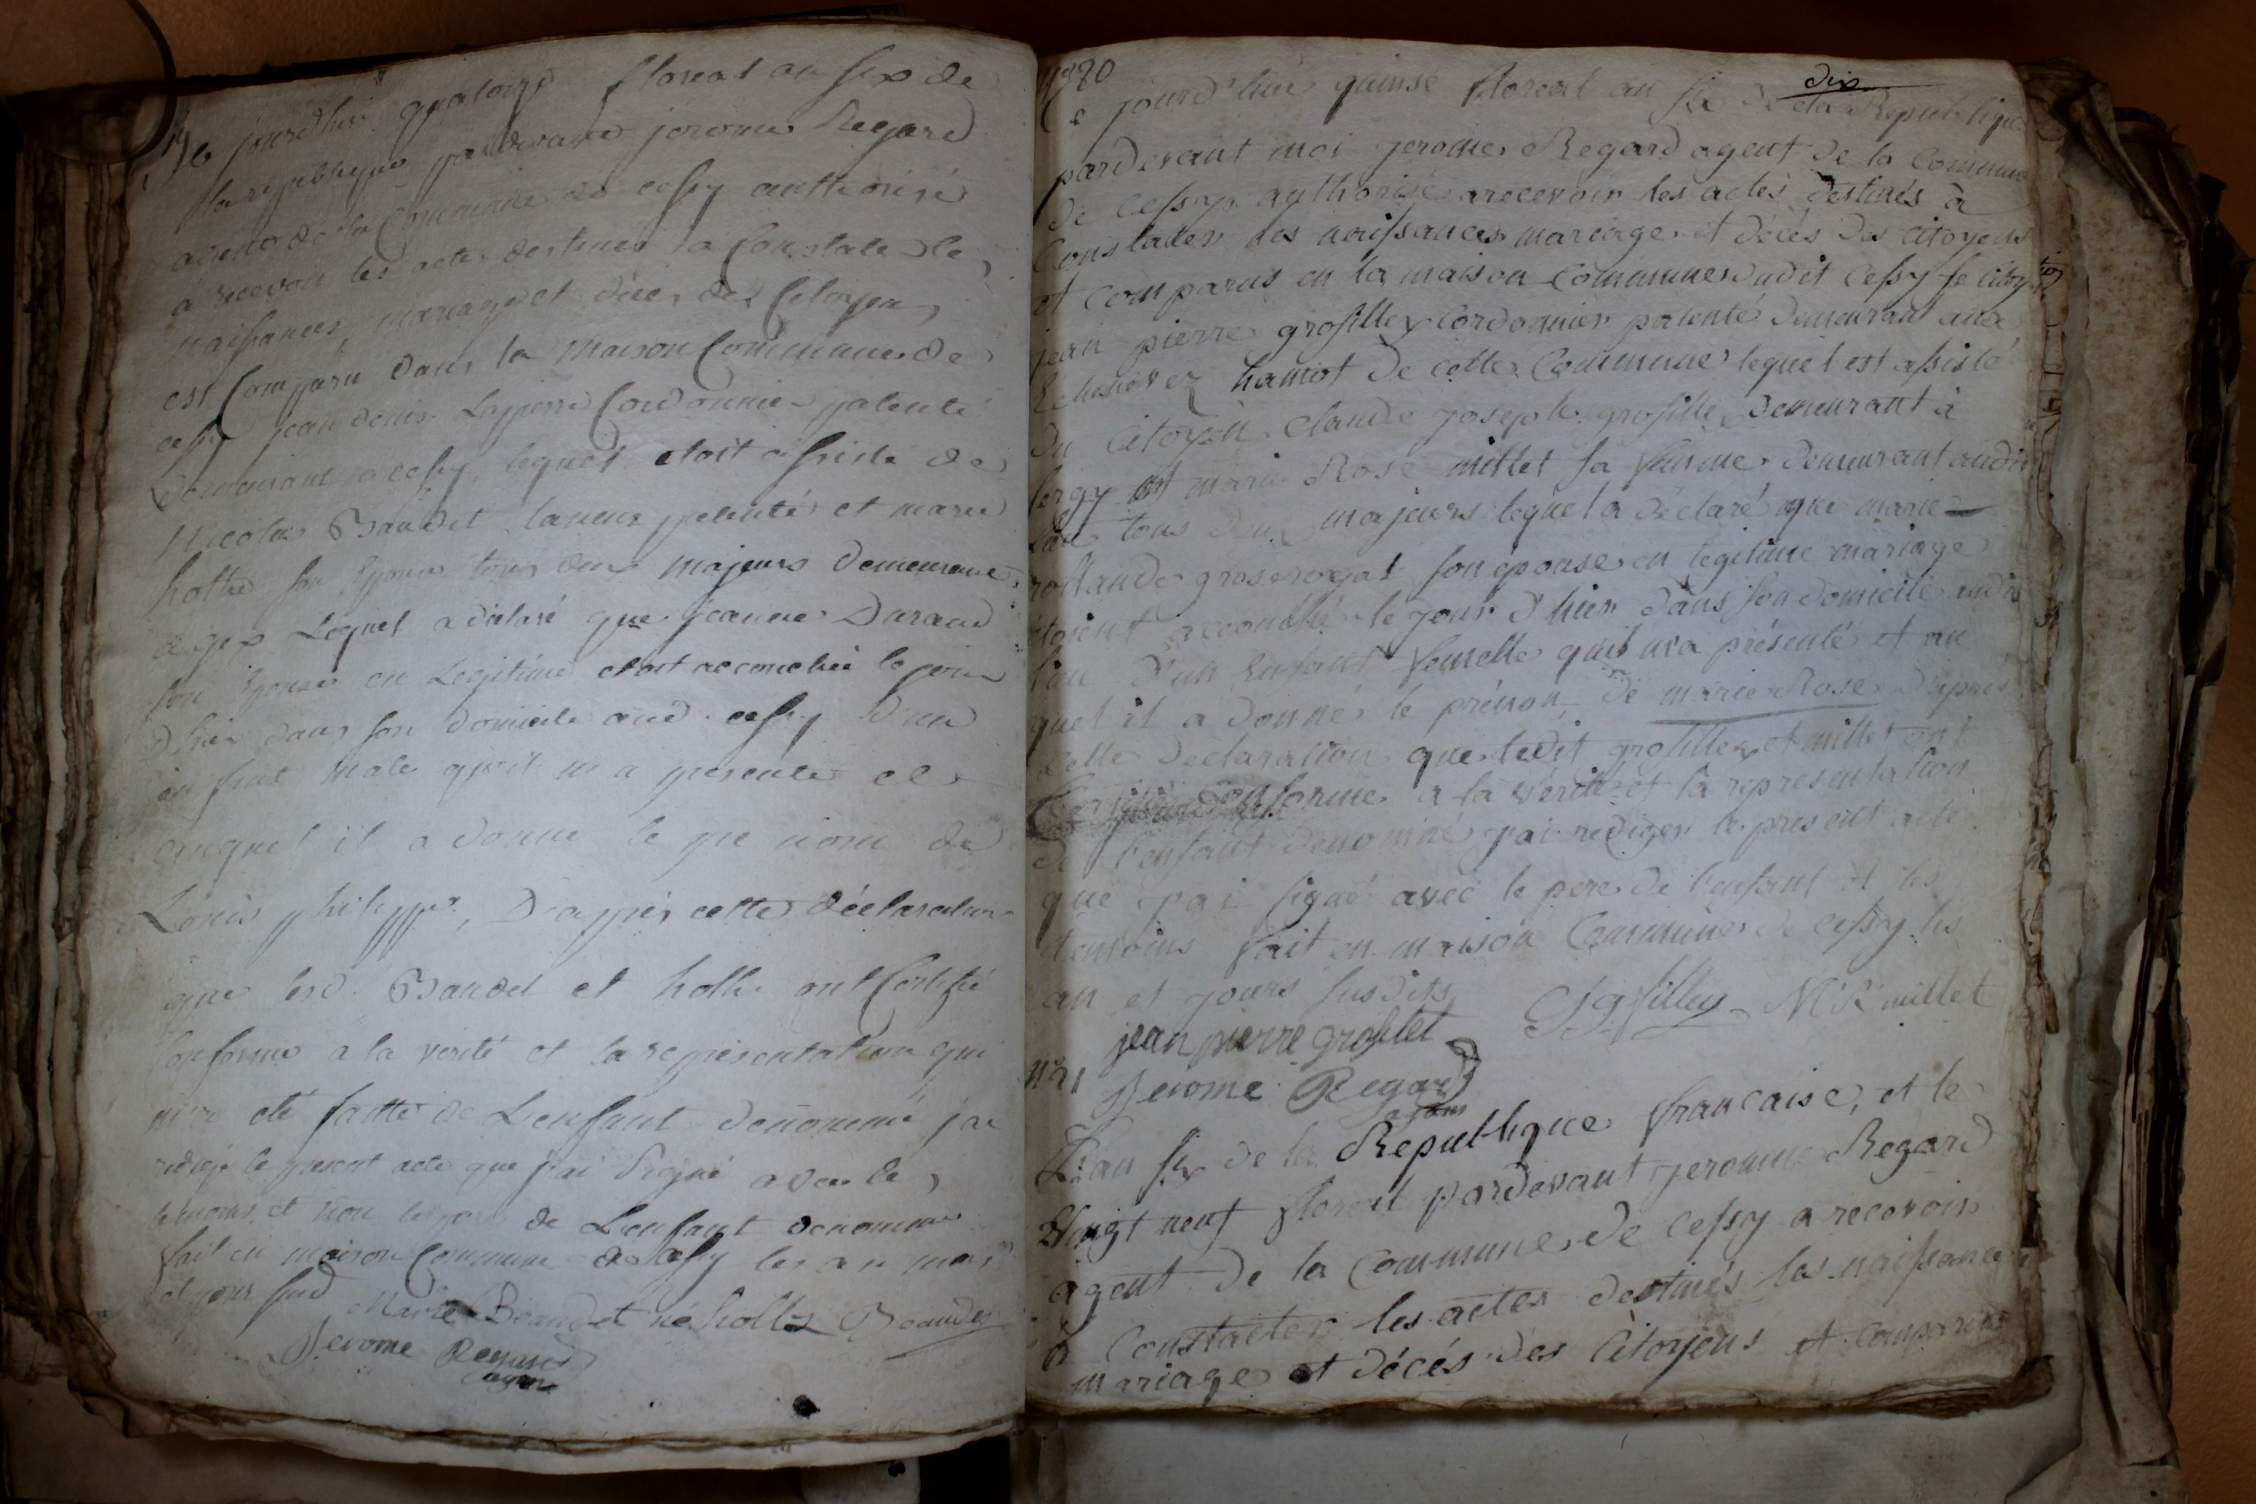 ce jourdhui quatorze floreal an six de
la republique pardevant jerome Regard
agent de la Commune de cessy authorisé
a recevoir les actes destinés a Constater les
naissances, mariage et décès des Citoyens
est Comparu dans la maison Commune de
cessy jean denis Lapierre Cordonnier patenté
demeurant a cessy, lequel etoit assisté de
Nicolas Baudet taneur patenté et marie
holtz son Epouse tous deux majeurs demeurant
a gex Lequel a déclaré que jeanne Durand
son Epouse en Legitime etoit accouchée le jour
d'hier dans son domicile aud. cessy d'un
enfant male qu'il m'a presenté et
auquel il a donné le pre nom de
Louis philippe, D'apprés cette déclaration
que lesd. Baudet et holtz ont Certifié
Conforme a la verité et la representation qui
m'a été faitte de L'enfant dénommé j'ai
redigé le present acte que j'ai signé avec les
temoins et non le pere de L'enfant denommé
fait en maison Commune de cessy les an mois
et jour susd
Marie Beaudet né holtz Beaudet
Jerome Regard
agent
n° 20
Ce jourd'hui quinse floreal an six de la Republique
dix
pardevant moi jerome Regard agent de la Commune
de cessy authorisé a recevoir les actes destinés à
Constatter les naissances mariage et décès des citoyens
et comparus en la maison Commune dudit cessy le citoyen
jean pierre grosfilley Cordonnier patenté demeurant aux
hamot de cette Commune lequel est assisté
du citoyen Claude joseph grosfilley demeurant à
Sergy et marie Rose millet sa femme demeurant audit
lieu tous deux majeurs lequel a déclaré que marie
rollande grosrogat son épouse en legitime mariage
étoient accouché le jour d'hier dans son domicile audit
lieu d'un Enfant femelle quil m'a présenté et au
quel il a donné le prénon de marie Rose D'après
cette Declaration que ledit grosfilley et millet ont
conforme a la vérité et la representation
de l'enfant dénominé j'ai rediger le present acte
que j'ai signé avec le pere de l'enfant et les
temoins fait en maison Commune de cessy les
an et jours susdits
CJ gfilley M R millet
jean pierre grosfilet
n° 21
Jerome Regard
agent
L'an six de la Republique francaise, et le
Vingt neuf floreal pardevant jerome Regard
agent de la Commune de cessy a recevoir
à Constatter les actes destinés les naissances
mariage et décés des Citoyens et comparus